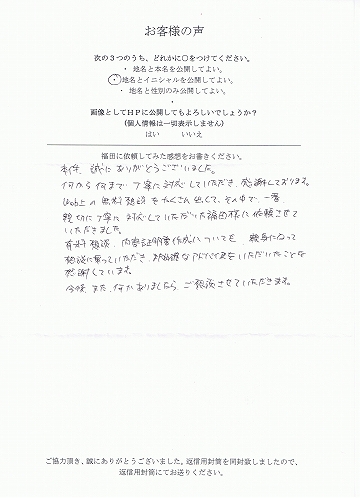 お客様の声
次の３つのうち、どれかに○をつけてください。
・ 地名と本名を公開してよい。
・ 地名とイニシャルを公開してよい。
・ 地名と性別のみ公開してよい。
・
画像としてＨＰに公開してもよろしいでしょうか？
（個人情報は一切表示しません）
はい　　いいえ
福田に依頼してみた感想をお書きください。
本件、誠にありがとうございました。
何から何まで丁寧に対応していただき、感謝しております。
Web上の無料相談をたくさんして、その中で、一番、
親切に丁寧に対応していただいた福田様に依頼させて
いただきました。
相談、内容証明書作成についても、親身になって
相談に乗っていただき、的確なアドバイスをいただいたことを
感謝しています。
今後、また、何かありましたら、ご相談させていただきます。
ご協力頂き、誠にありがとうございました。返信用封筒を同封致しましたので、
返信用封筒にてお送りください。